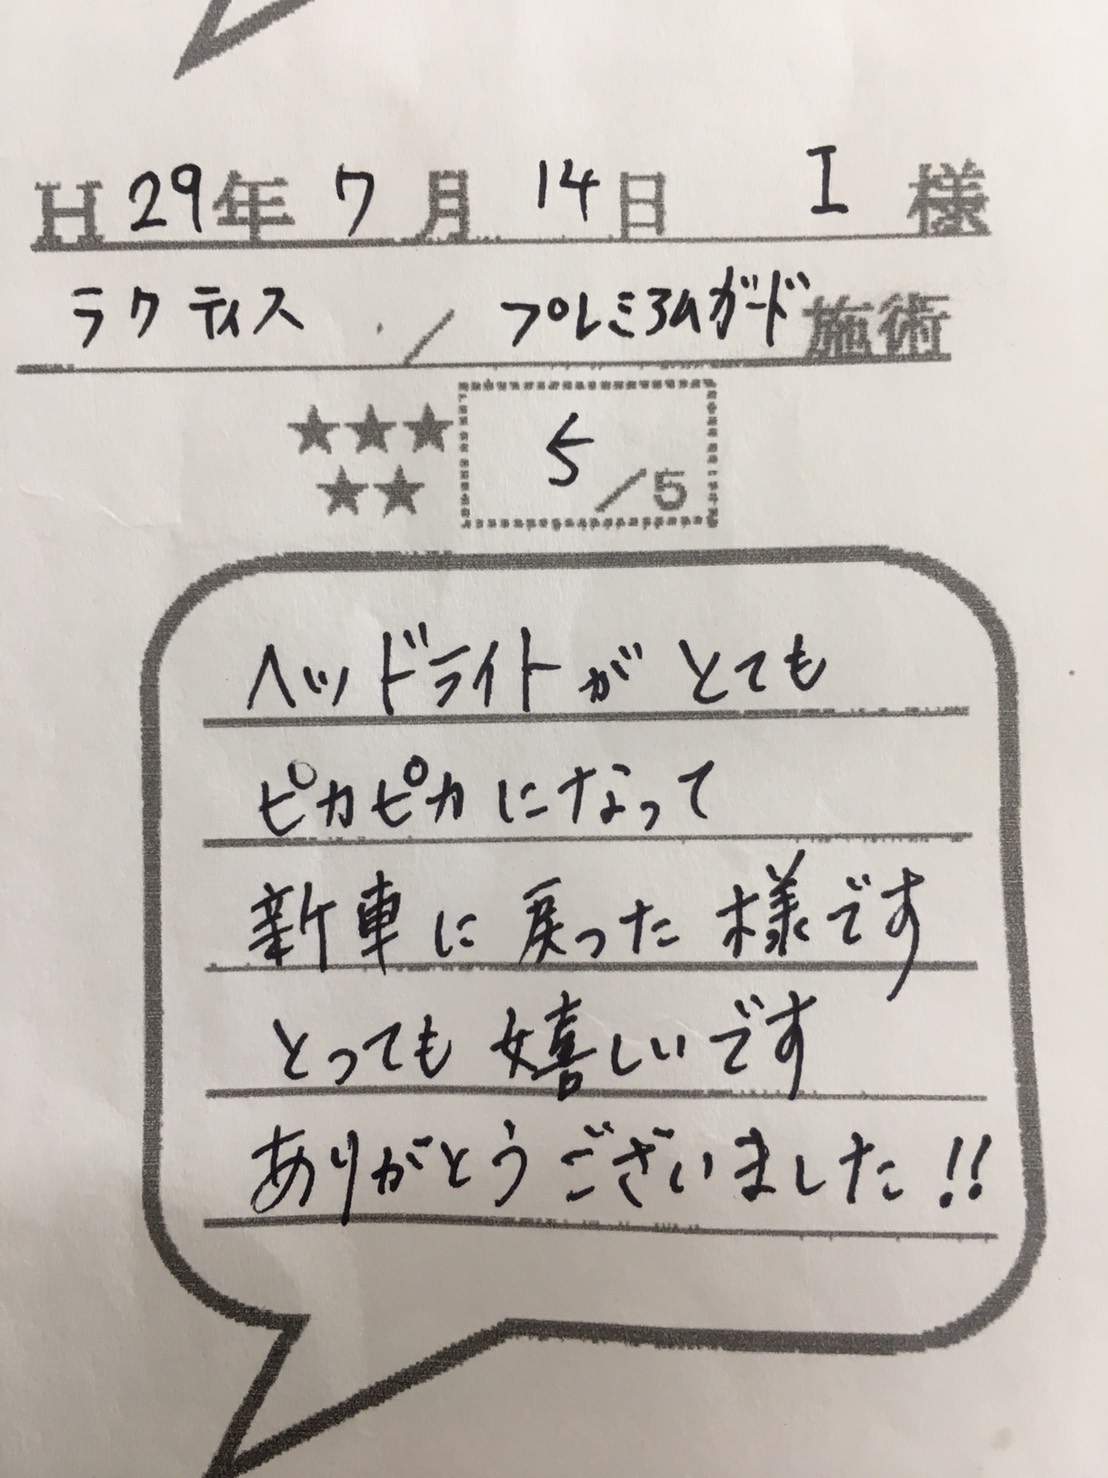 H 29年 7月 14日 I 様
ラクティス / プレミアムガード施術
★★★ 5/5
★★
ヘッドライトがとても
ピカピカになって
新車に戻った様です
とっても嬉しいです
ありがとうございました!!